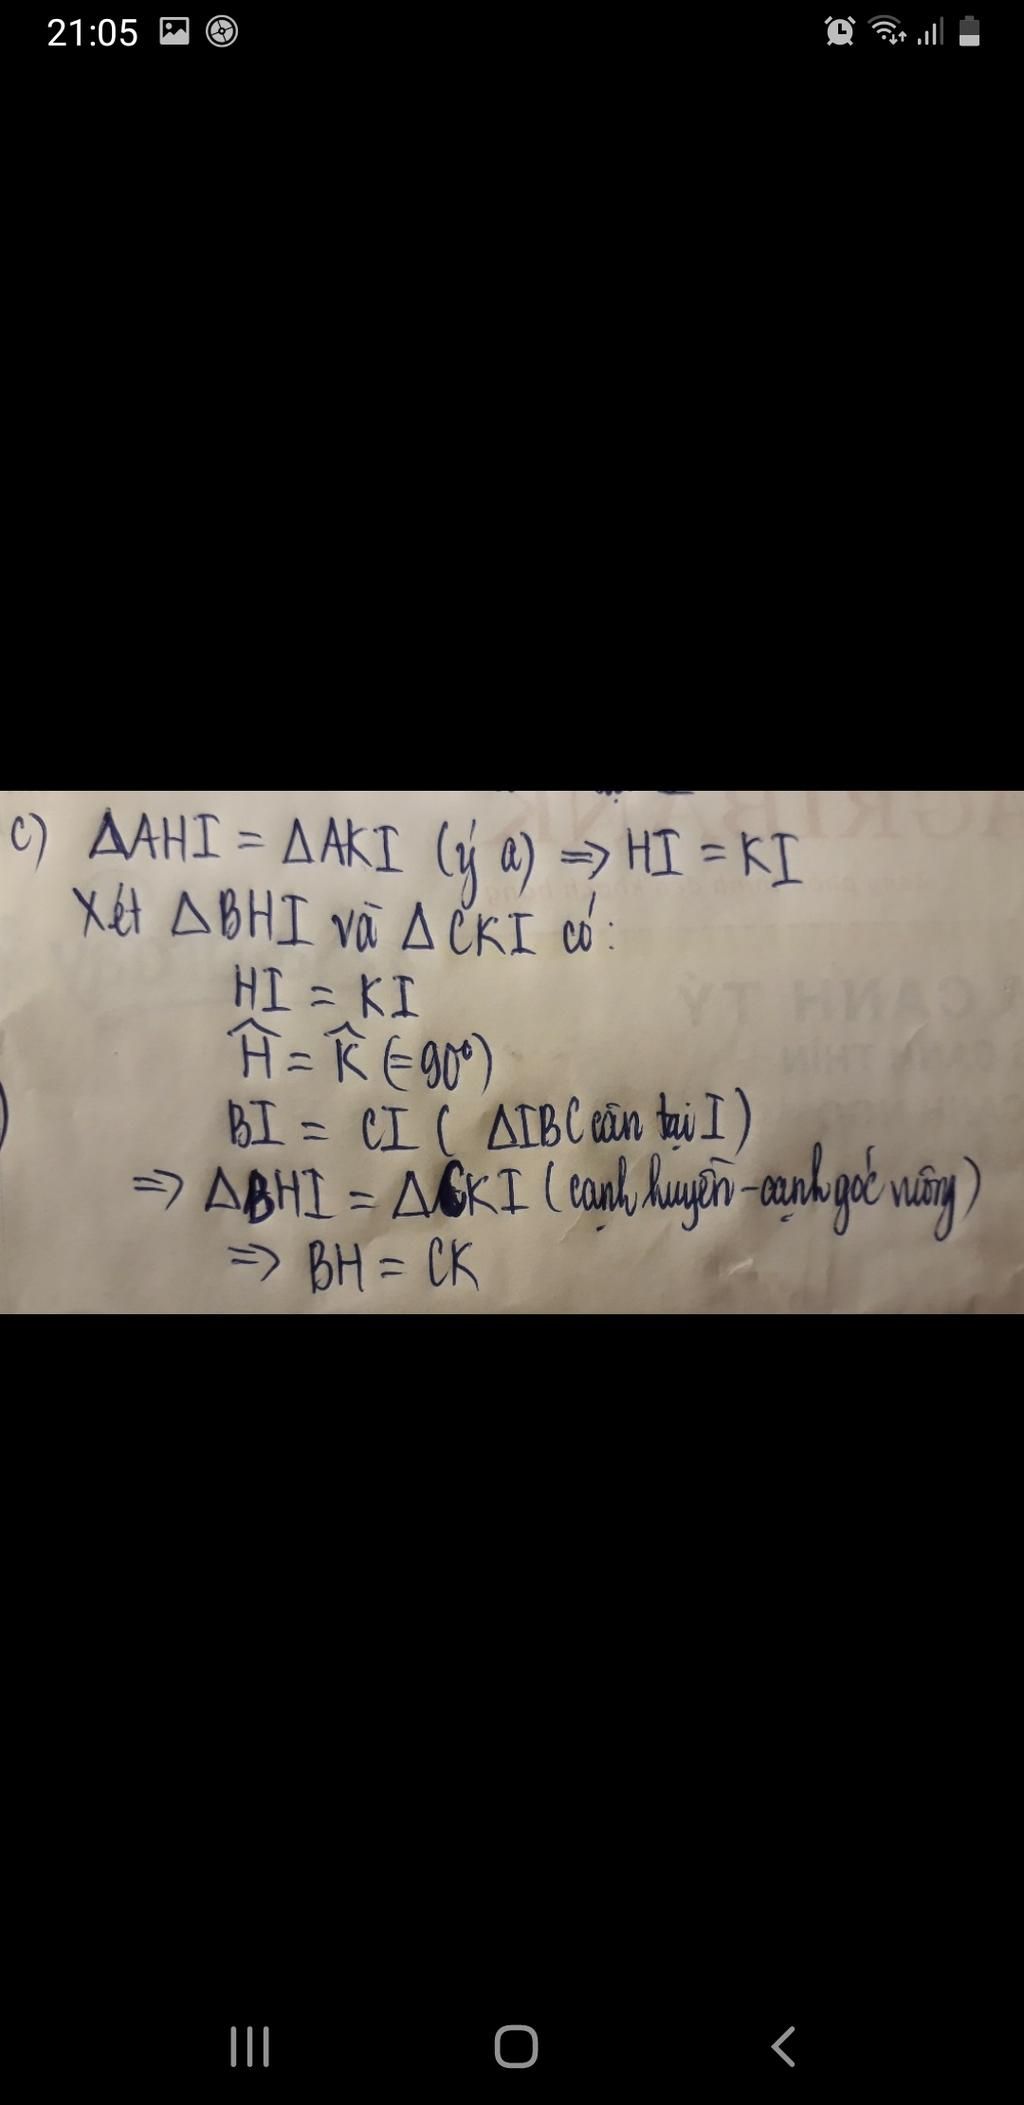 21:05
c) ΔAHI = ΔAKI (ý a) => HI = KI
Xét ΔBHI và ΔCKI có:
HI = KI
Ĥ = K̂ (=90°)
BI = CI ( ΔIBC cân tại I )
=> ΔBHI = ΔCKI (cạnh huyền - cạnh góc vuông)
=> BH = CK